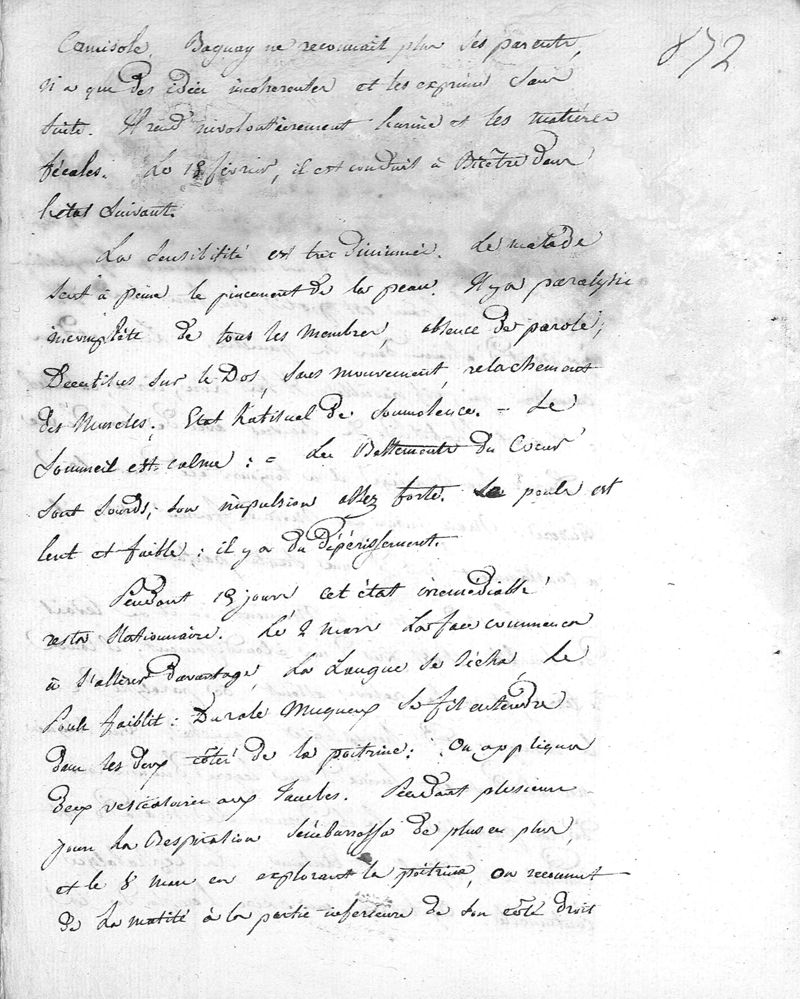 872
Camisole. Baguay ne reconnait plus ses parents,
n'a que des idées incohérentes et les exprime sans
suite. Il rend involontairement l'urine et les matières
fécales. Le 15 février, il est conduit à Bicêtre dans
l'état suivant.
La sensibilité est très diminuée. Le malade
sent à peine le pincement de la peau. Il y a paralysie
incomplète de tous les membres, absence de parole,
Decubitus sur le Dos, sans mouvement, relachement
des Muscles. Etat habituel de somnolence. = Le
Sommeil est calme : = Les Battements du Coeur
sont sourds, son impulsion assez forte. Le pouls est
lent et faible : il y a du dépérissement.
Pendant 15 jours cet état irremediable
resta stationnaire. Le 2 mars La face commença
à s'altérer davantage, La Langue se sécha, Le
Pouls faiblit : Du rale Muqueux se fit entendre
dans les deux côtés de la poitrine : On appliqua
deux vesicatoires aux Jambes. Pendant plusieurs
jours La Respiration s'embarrassa de plus en plus,
et le 8 mars en explorant la poitrine, on reconnut
de La matité à la partie inférieure de son côté droit